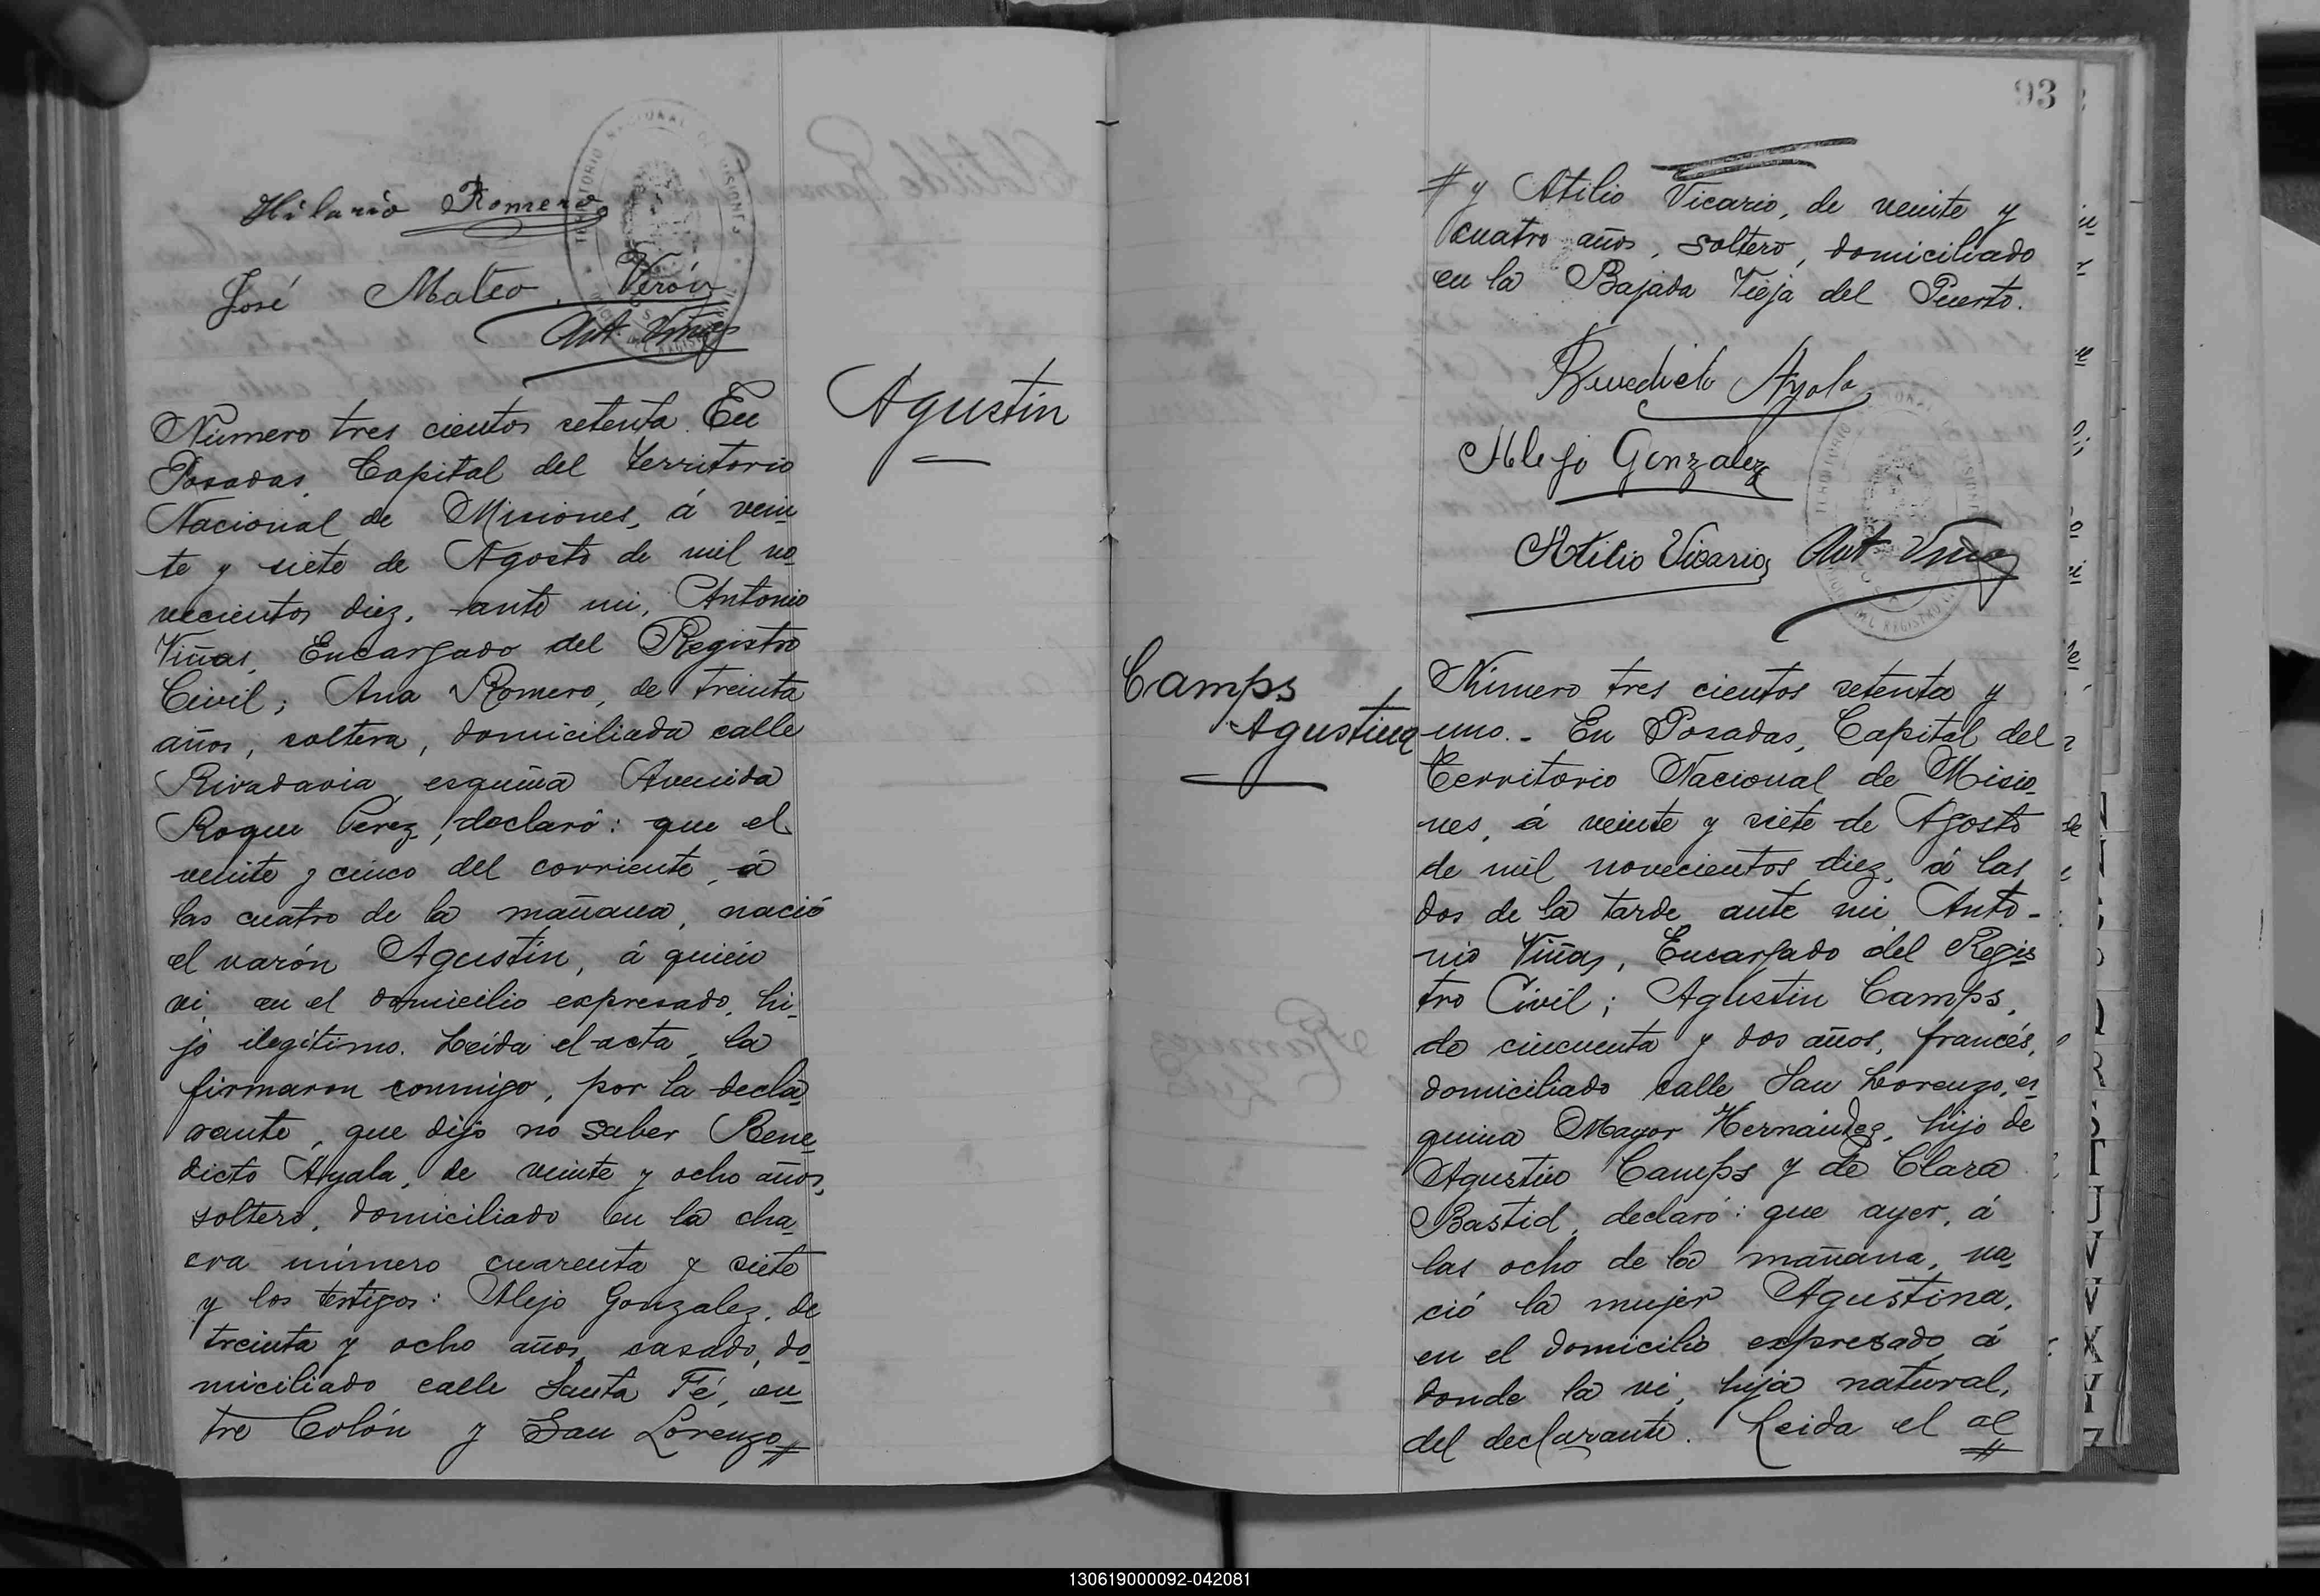 Hilario Romero
José Mateo Verón
Ant. Viñas
Agustín
Número tres cientos setenta. En
Posadas, Capital del Territorio
Nacional de Misiones, á vein
te y siete de Agosto de mil no
vecientos diez, ante mi, Antonio
Viñas, Encargado del Registro
Civil; Ana Romero, de treinta
años, soltera, domiciliada calle
Rivadavia esquina Avenida
Roque Pérez, declaró: que el
veinte y cinco del corriente, á
las cuatro de la mañana, nació
el varón Agustín, á quien
vi en el domicilio expresado, hi
jo ilegítimo. Leída el acta, la
firmaron conmigo, por la decla
rante, que dijo no saber Bene
dicto Ayala, de veinte y ocho años,
soltero, domiciliado en la cha
cra número cuarenta y siete
y los testigos: Alejo Gonzalez, de
treinta y ocho años, casado, do
miciliado calle Santa Fé, en
tre Colón y San Lorenzo #
93
# y Atilio Vicario, de veinte y
cuatro años, soltero, domiciliado
en la Bajada Vieja del Puerto.
Benedicto Ayala
Alejo Gonzalez
Atilio Vicario Ant. Viñas
Camps
Agustina
Número tres cientos setenta y
uno.- En Posadas, Capital del
Territorio Nacional de Misio
nes, á veinte y siete de Agosto
de mil novecientos diez, á las
dos de la tarde, ante mi, Anto-
nio Viñas, Encargado del Regis
tro Civil; Agustin Camps,
de cincuenta y dos años, francés,
domiciliado calle San Lorenzo, es
quina Mayor Hernández, hijo de
Agustin Camps y de Clara
Bastid, declaró: que ayer, á
las ocho de la mañana, na
ció la mujer Agustina,
en el domicilio expresado á
donde la vi, hija natural,
del declarante. Leida el ac
#
130619000092-042081